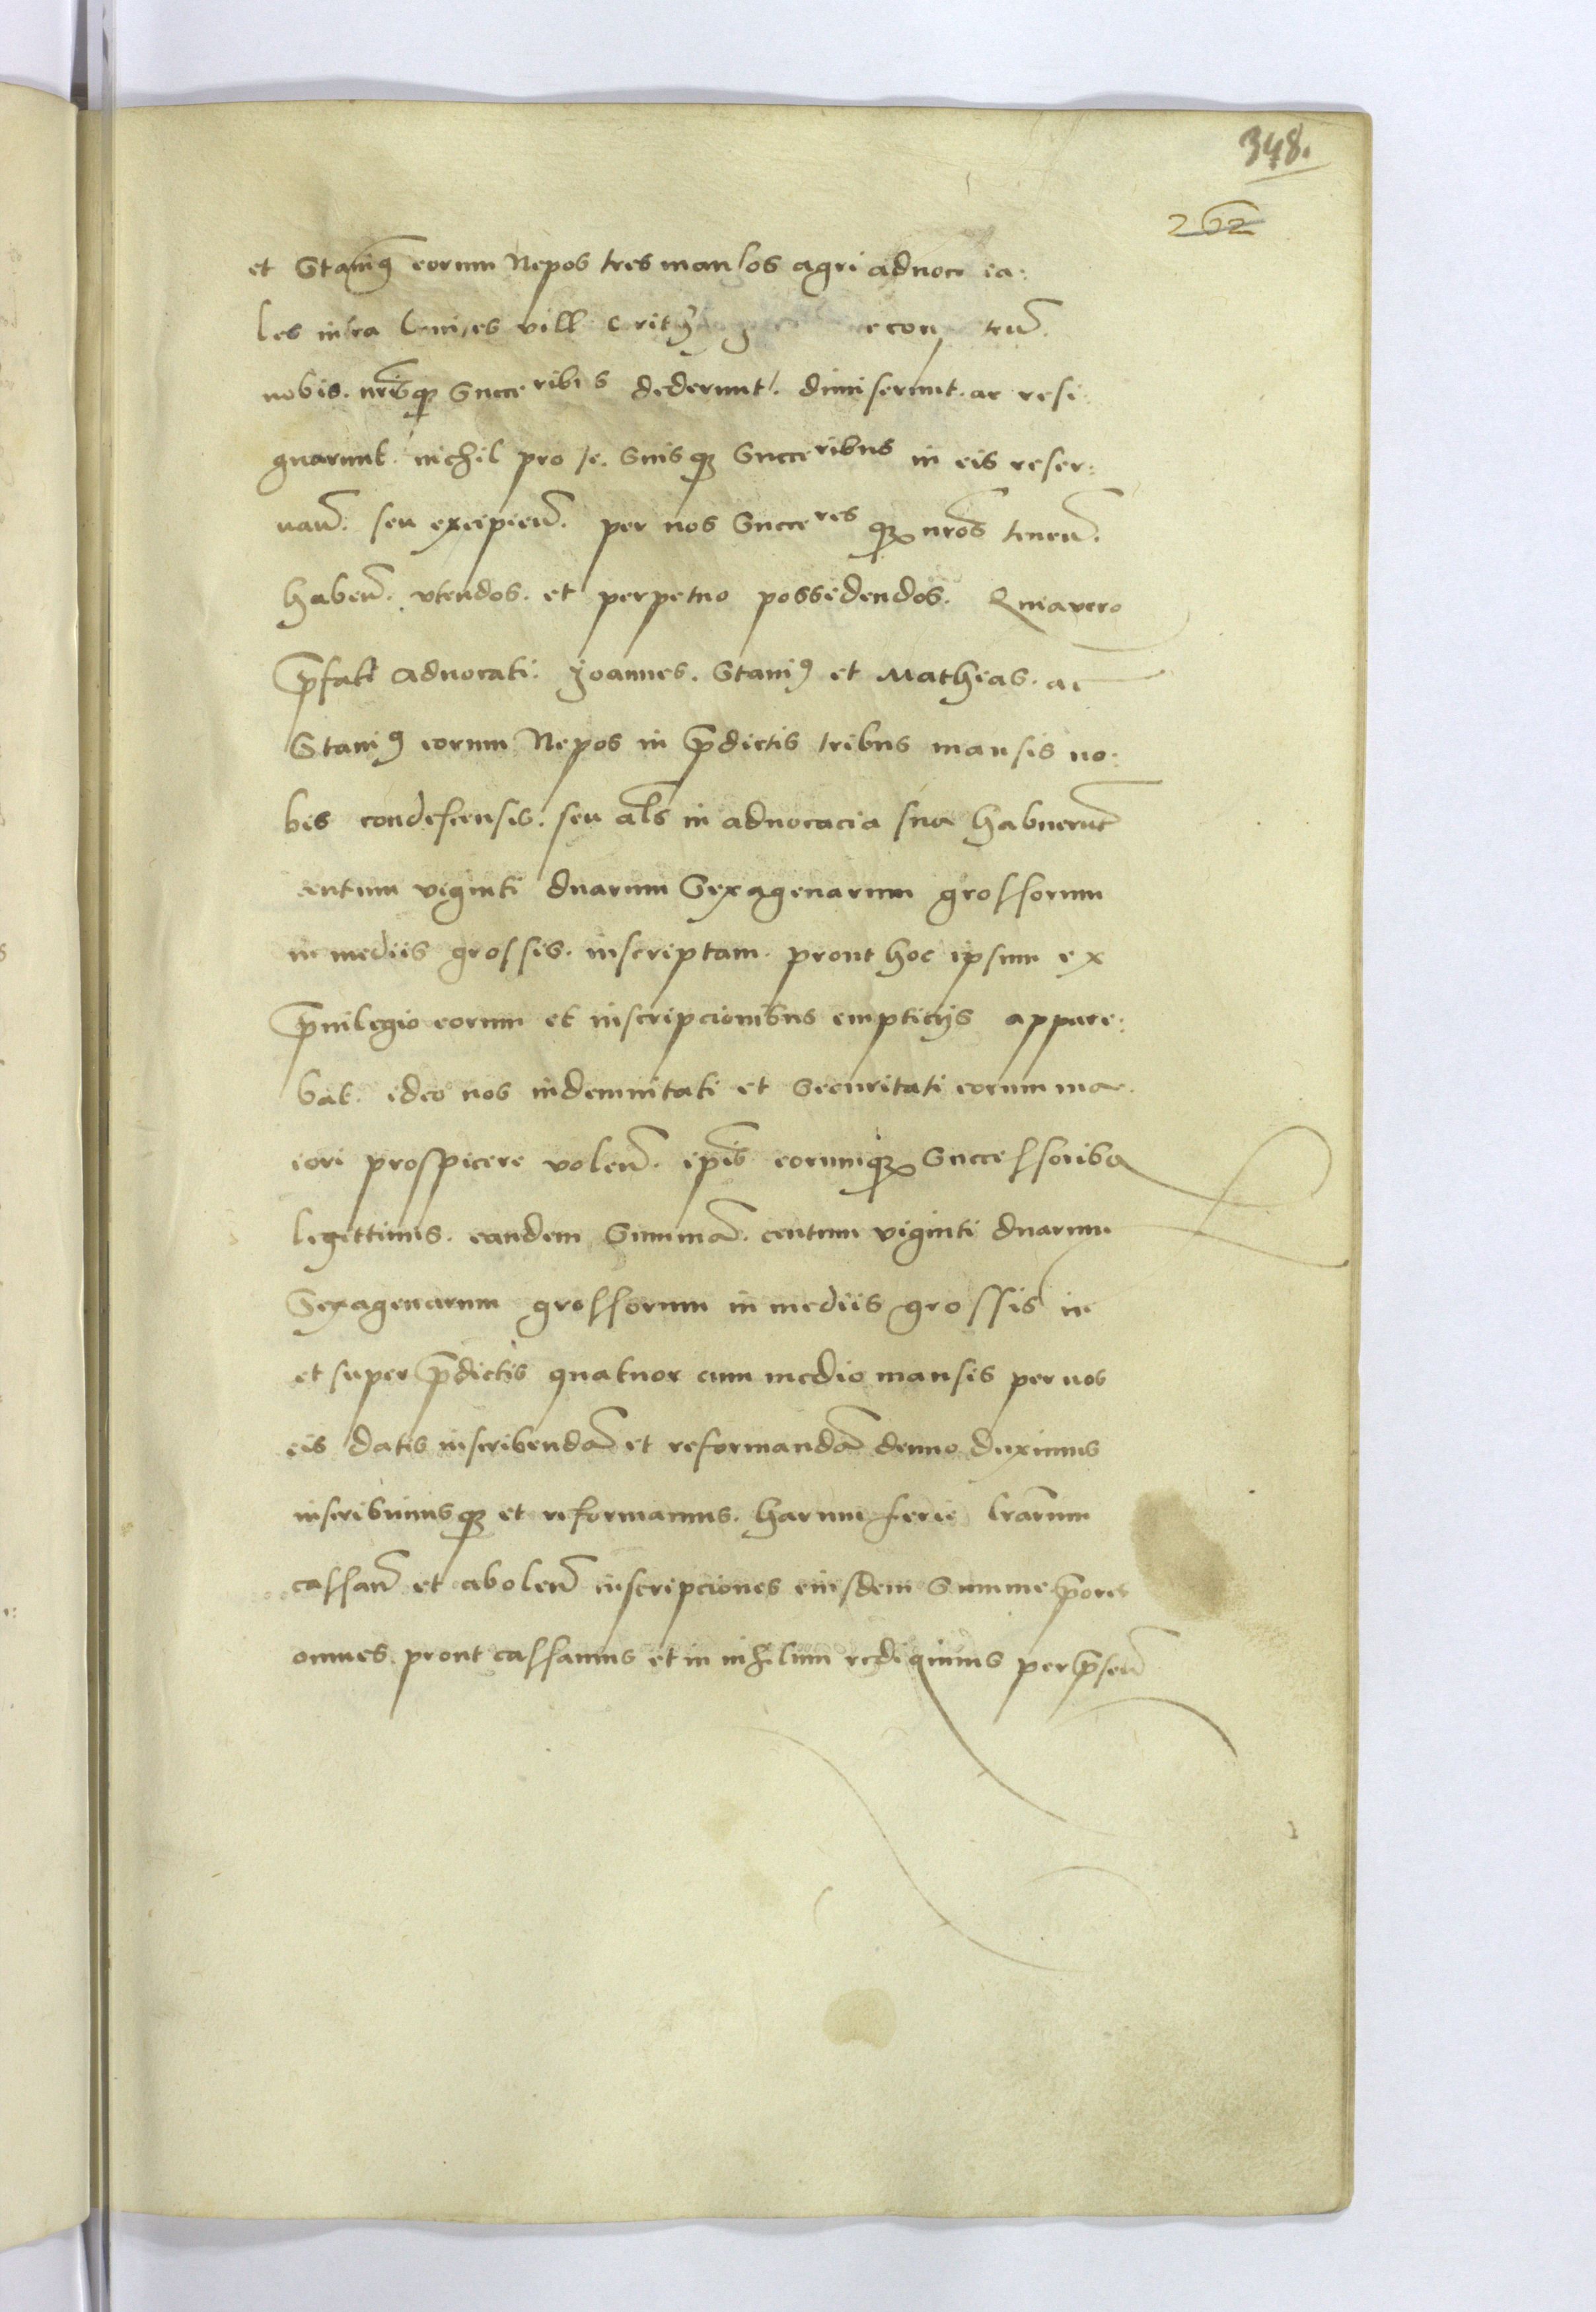 348.
262
et Staniꝰ eorum Nepos tres mansos agri aduoca cia:
les infra limites vill
nobis. nr̃isqꝫ Succeribus dederunt. dimiserunt. ac resi
gnarunt. nichil pro se. Suisqꝫ Succeribus in eis reser:
uañ. seu excipieñ. per nos Succeres qꝫ nr̃os teneñ.
habeñ. vtendos. et perpetuo possidendos. Quia vero
p̃fati aduocati. Joannes. Staniꝰ et Mathias. ac
Staniꝰ eorum Nepos in p̃dictis tribus mansis no:
bis condescensis. seu al̃s in aduocacia sua habuerũt
centum viginti duarum Sexagenarum grossorum
in mediis grossis. inscriptam. prout hoc ipsum ex
p̃uilegio eorum et inscripcionibus empticijs appare:
bat. ideo nos indemnitati et Securitati eorum ma
iori prospicere voleñ. ip̃is eorumqꝫ Successoribꝰ
legittimis. eandem Summã. centum viginti duarum
Sexagenarum grossorum in mediis grossis in
et super p̃dictis quatuor cum medio mansis per nos
eis datis inscribendã et reformandã denuo duximus
inscribimusqꝫ et reformamus. harum serie lr̃arum
cassañ et aboleñ inscripciones eiusdem Summe p̃ores
omnes. prout cassamus et in nihilum redigimus per p̃señ